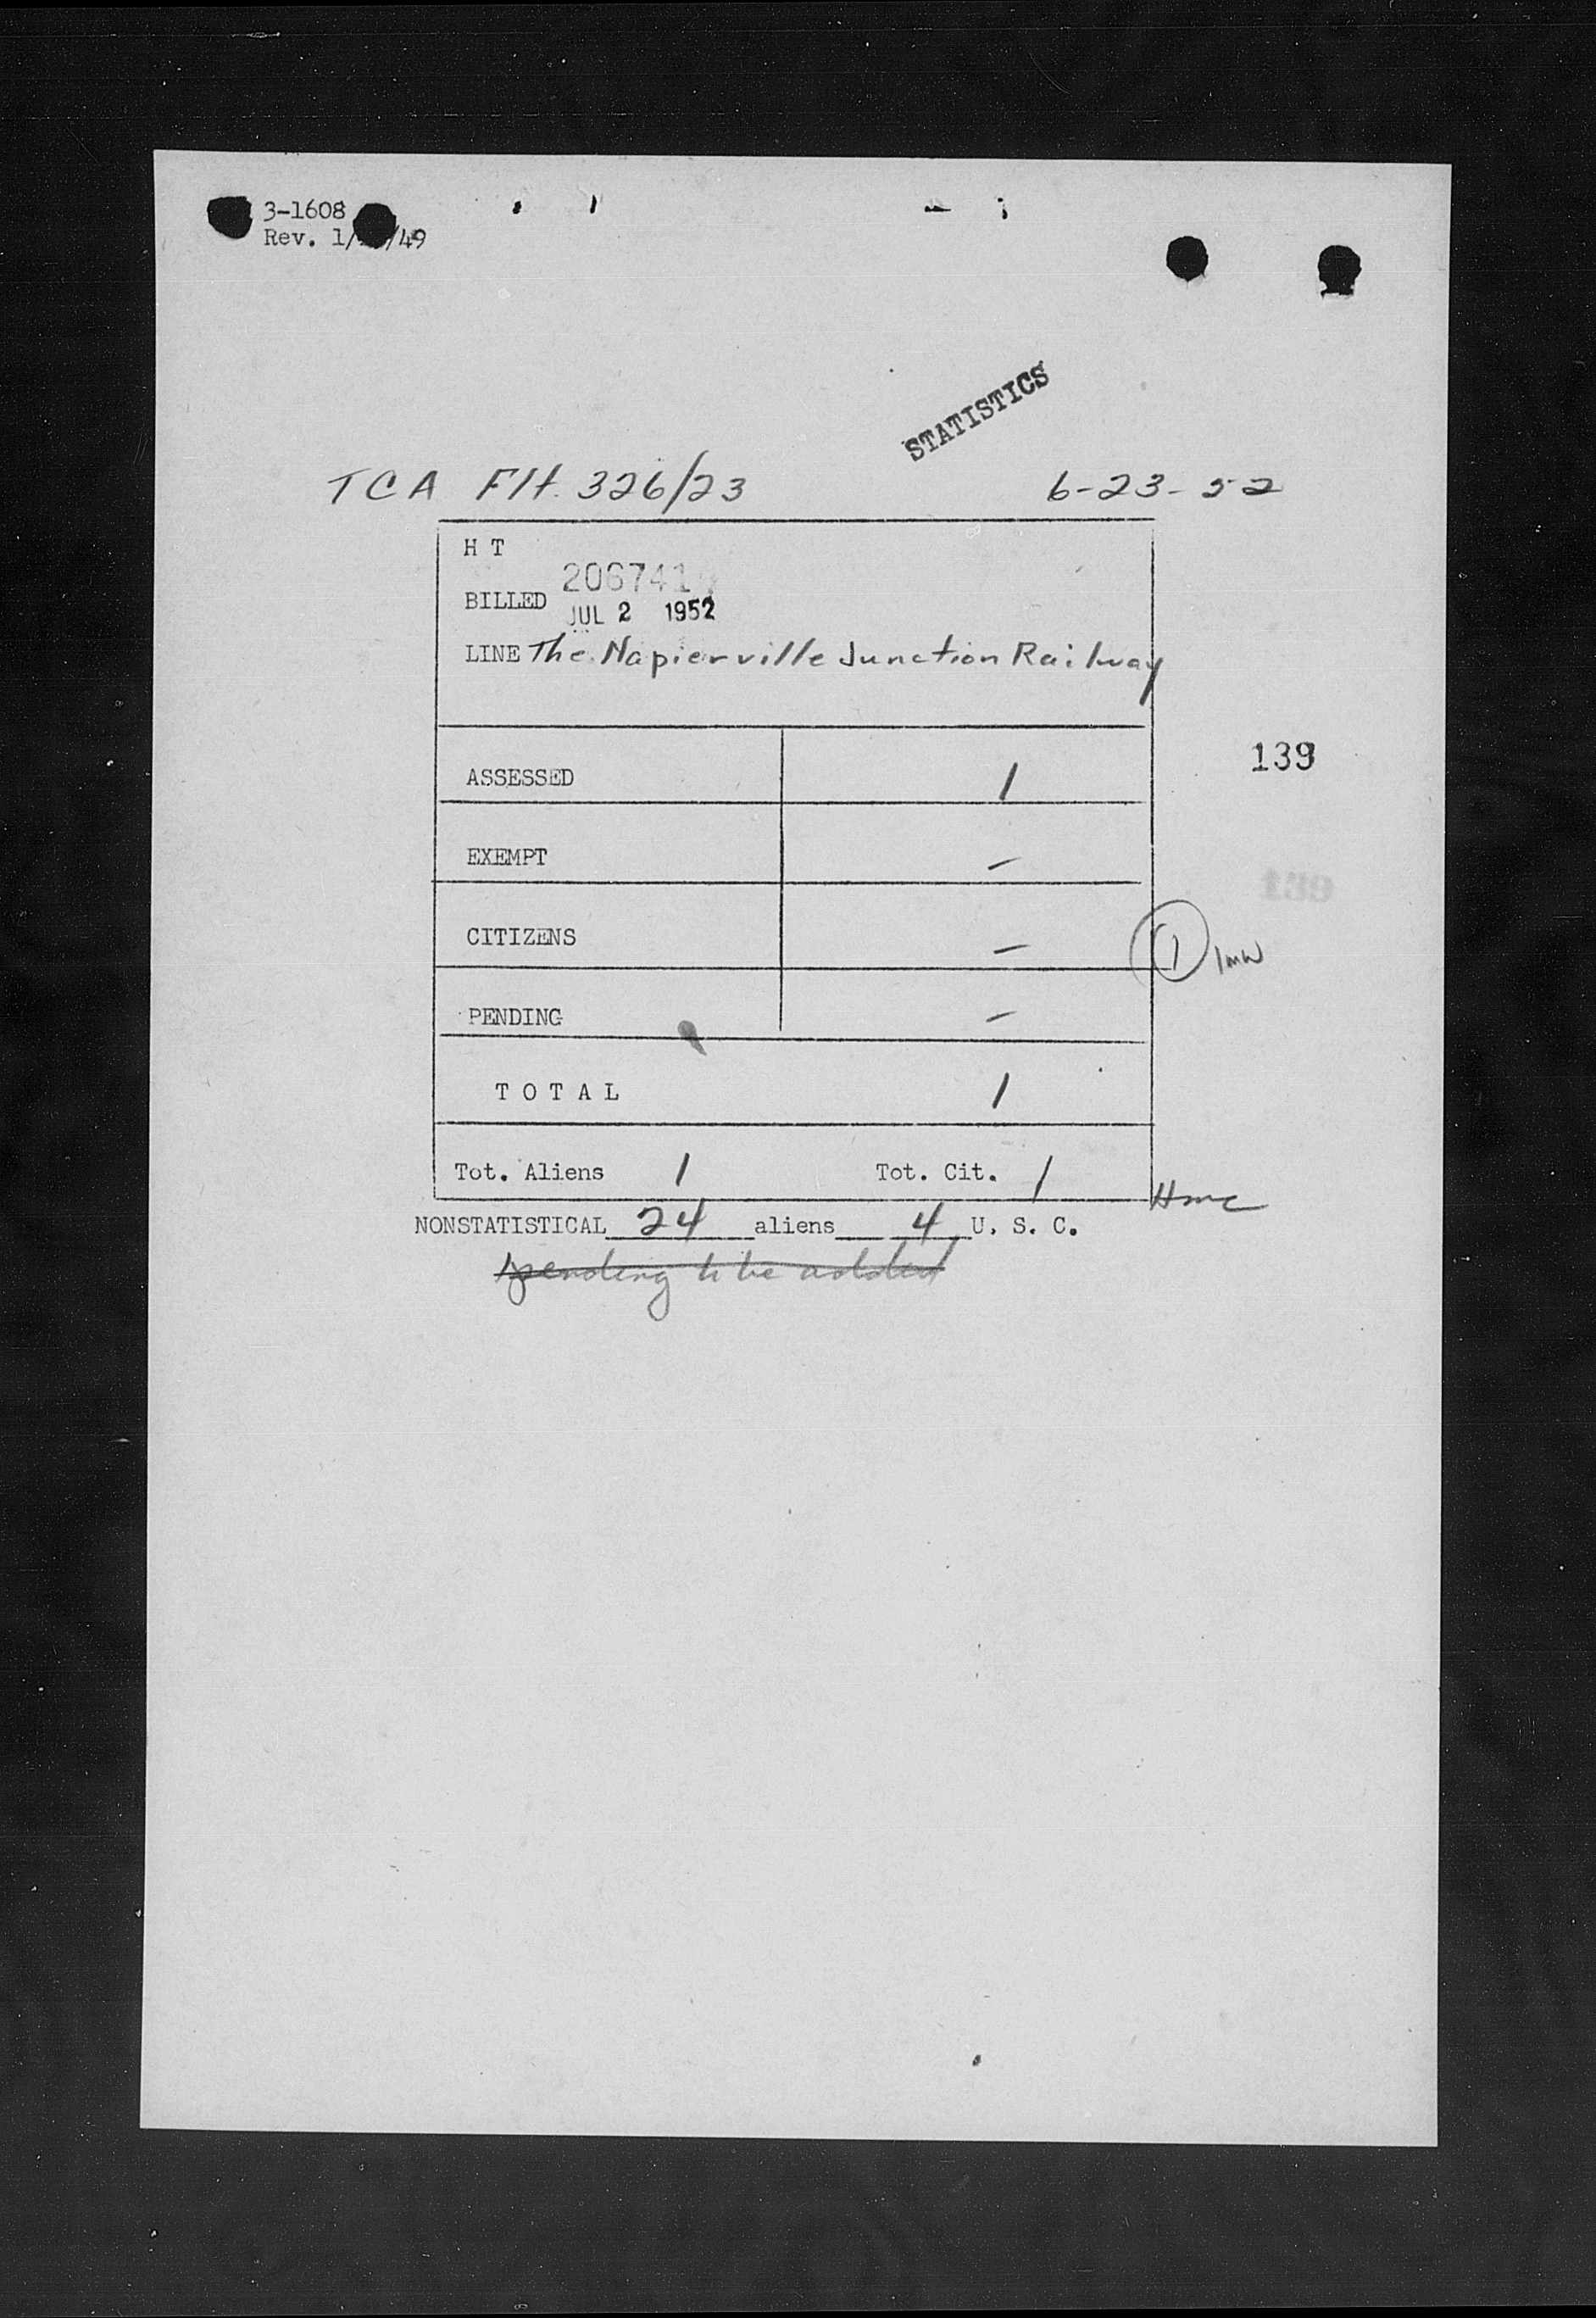 3-1608
Rev. 1/ /49
STATISTICS
TCA Flt. 326/23 6-23-52
H T
206741
BILLED JUL 2 1952
LINE The Napierville Junction Railway
139
ASSESSED 1
EXEMPT –
139
CITIZENS – 1 1mw
PENDING –
T O T A L 1
Tot. Aliens 1 Tot. Cit. 1
NONSTATISTICAL 24 aliens 4 U. S. C.
1 pending to be added